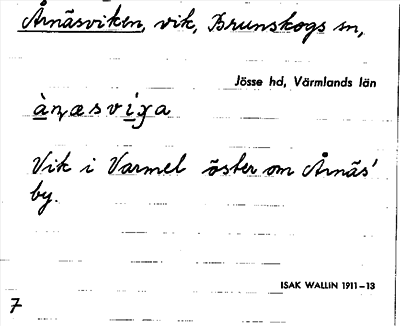 Årnäsviken, vik, Brunskogs sn,
Jösse hd, Värmlands län
Vik i Varmel öster om Årnäs'
by.
ISAK WALLIN 1911–13
7